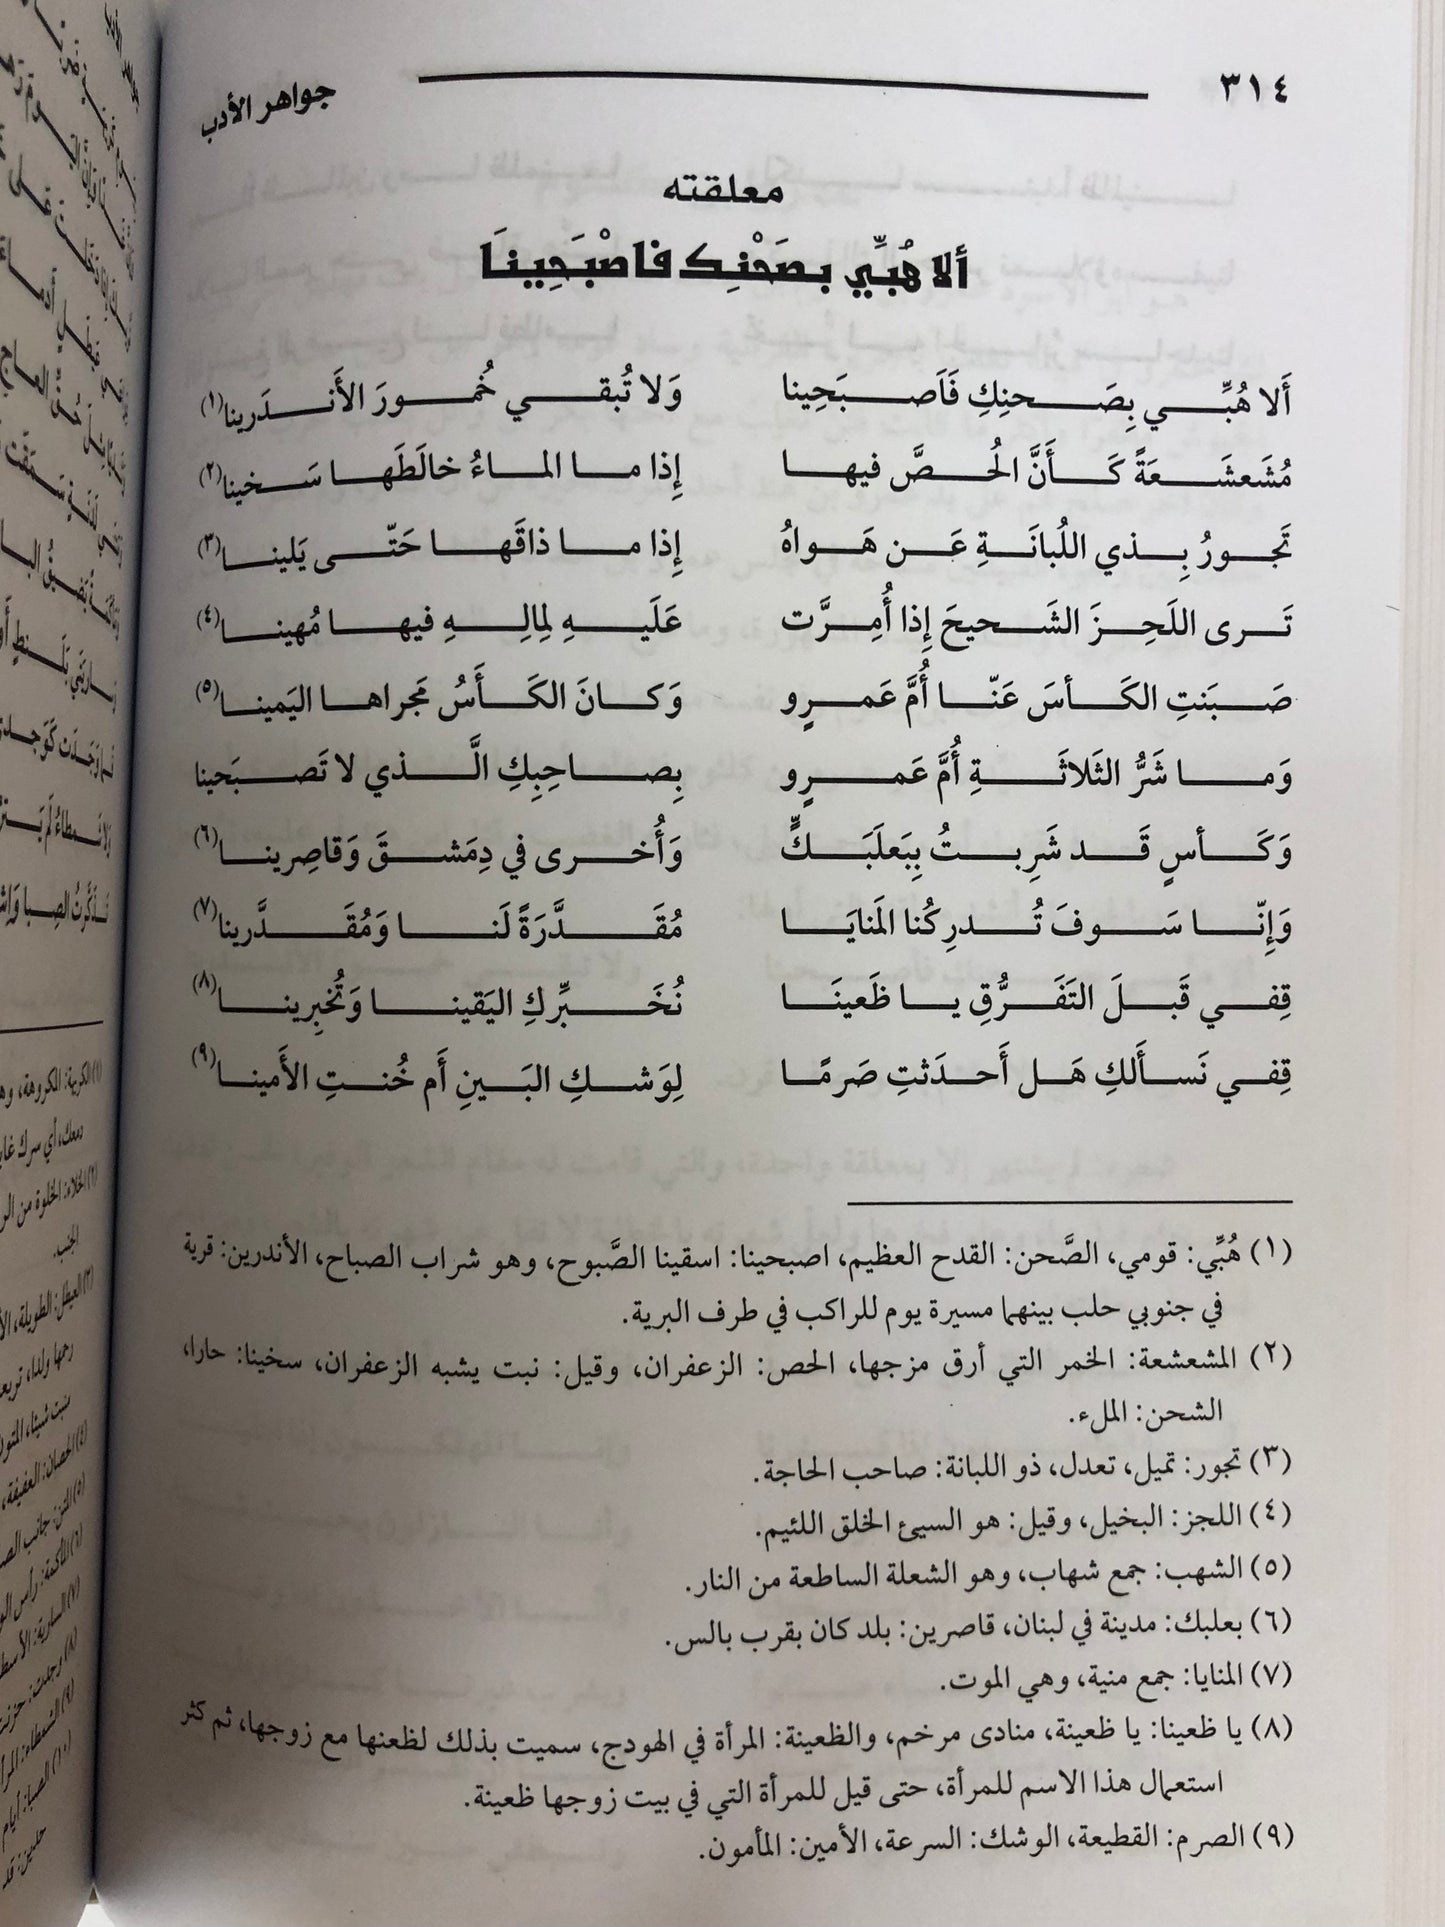 ٣١٤
جواهر الأدب
معلقته
ألا هُبِّي بصَحْنِك فاصْبَحِينَا
أَلا هُبِّي بِصَحنِكِ فَاَصبَحِينا وَلا تُبقي خُمورَ الأَندَرينا(١)
مُشَعشَعَةً كَأَنَّ الحُصَّ فيها إِذا ما الماءُ خالَطَها سَخينا(٢)
تَجورُ بِذي اللُبانَةِ عَن هَواهُ إِذا ما ذاقَها حَتّى يَلينا(٣)
تَرى اللَحِزَ الشَحيحَ إِذا أُمِرَّت عَلَيهِ لِمالِهِ فيها مُهينا(٤)
صَبَنتِ الكَأسَ عَنّا أُمَّ عَمرٍو وَكانَ الكَأسُ مَجراها اليَمينا(٥)
وَما شَرُّ الثَلاثَةِ أُمَّ عَمرٍو بِصاحِبِكِ الَّذي لا تَصبَحينا
وَكَأسٍ قَد شَرِبتُ بِبَعلَبَكٍّ وَأُخرى في دِمَشقَ وَقاصِرينا(٦)
وَإِنّا سَوفَ تُدرِكُنا المَنايَا مُقَدَّرَةً لَنا وَمُقَدَّرينا(٧)
قِفي قَبلَ التَفَرُّقِ يا ظَعينَا نُخَبِّركِ اليَقينا وَتُخبِرينا(٨)
قِفي نَسأَلكِ هَل أَحدَثتِ صَرمًا لِوَشكِ البَينِ أَم خُنتِ الأَمينا(٩)
(١) هُبِّي: قومي، الصَّحن: القدح العظيم، اصبحينا: اسقينا الصَّبوح، وهو شراب الصباح، الأندرين: قرية
في جنوبي حلب بينهما مسيرة يوم للراكب في طرف البرية.
(٢) المشعشعة: الخمر التي أرق مزجها، الحص: الزعفران، وقيل: نبت يشبه الزعفران، سخينا: حارا،
الشحن: الملء.
(٣) تجور: تميل، تعدل، ذو اللبانة: صاحب الحاجة.
(٤) اللجز: البخيل، وقيل: هو السيئ الخلق اللئيم.
(٥) الشهب: جمع شهاب، وهو الشعلة الساطعة من النار.
(٦) بعلبك: مدينة في لبنان، قاصرين: بلد كان بقرب بالس.
(٧) المنايا: جمع منية، وهي الموت.
(٨) يا ظعينا: يا ظعينة، منادى مرخم، والظعينة: المرأة في الهودج، سميت بذلك لظعنها مع زوجها، ثم كثر
استعمال هذا الاسم للمرأة، حتى قيل للمرأة التي في بيت زوجها ظعينة.
(٩) الصرم: القطيعة، الوشك: السرعة، الأمين: المأمون.